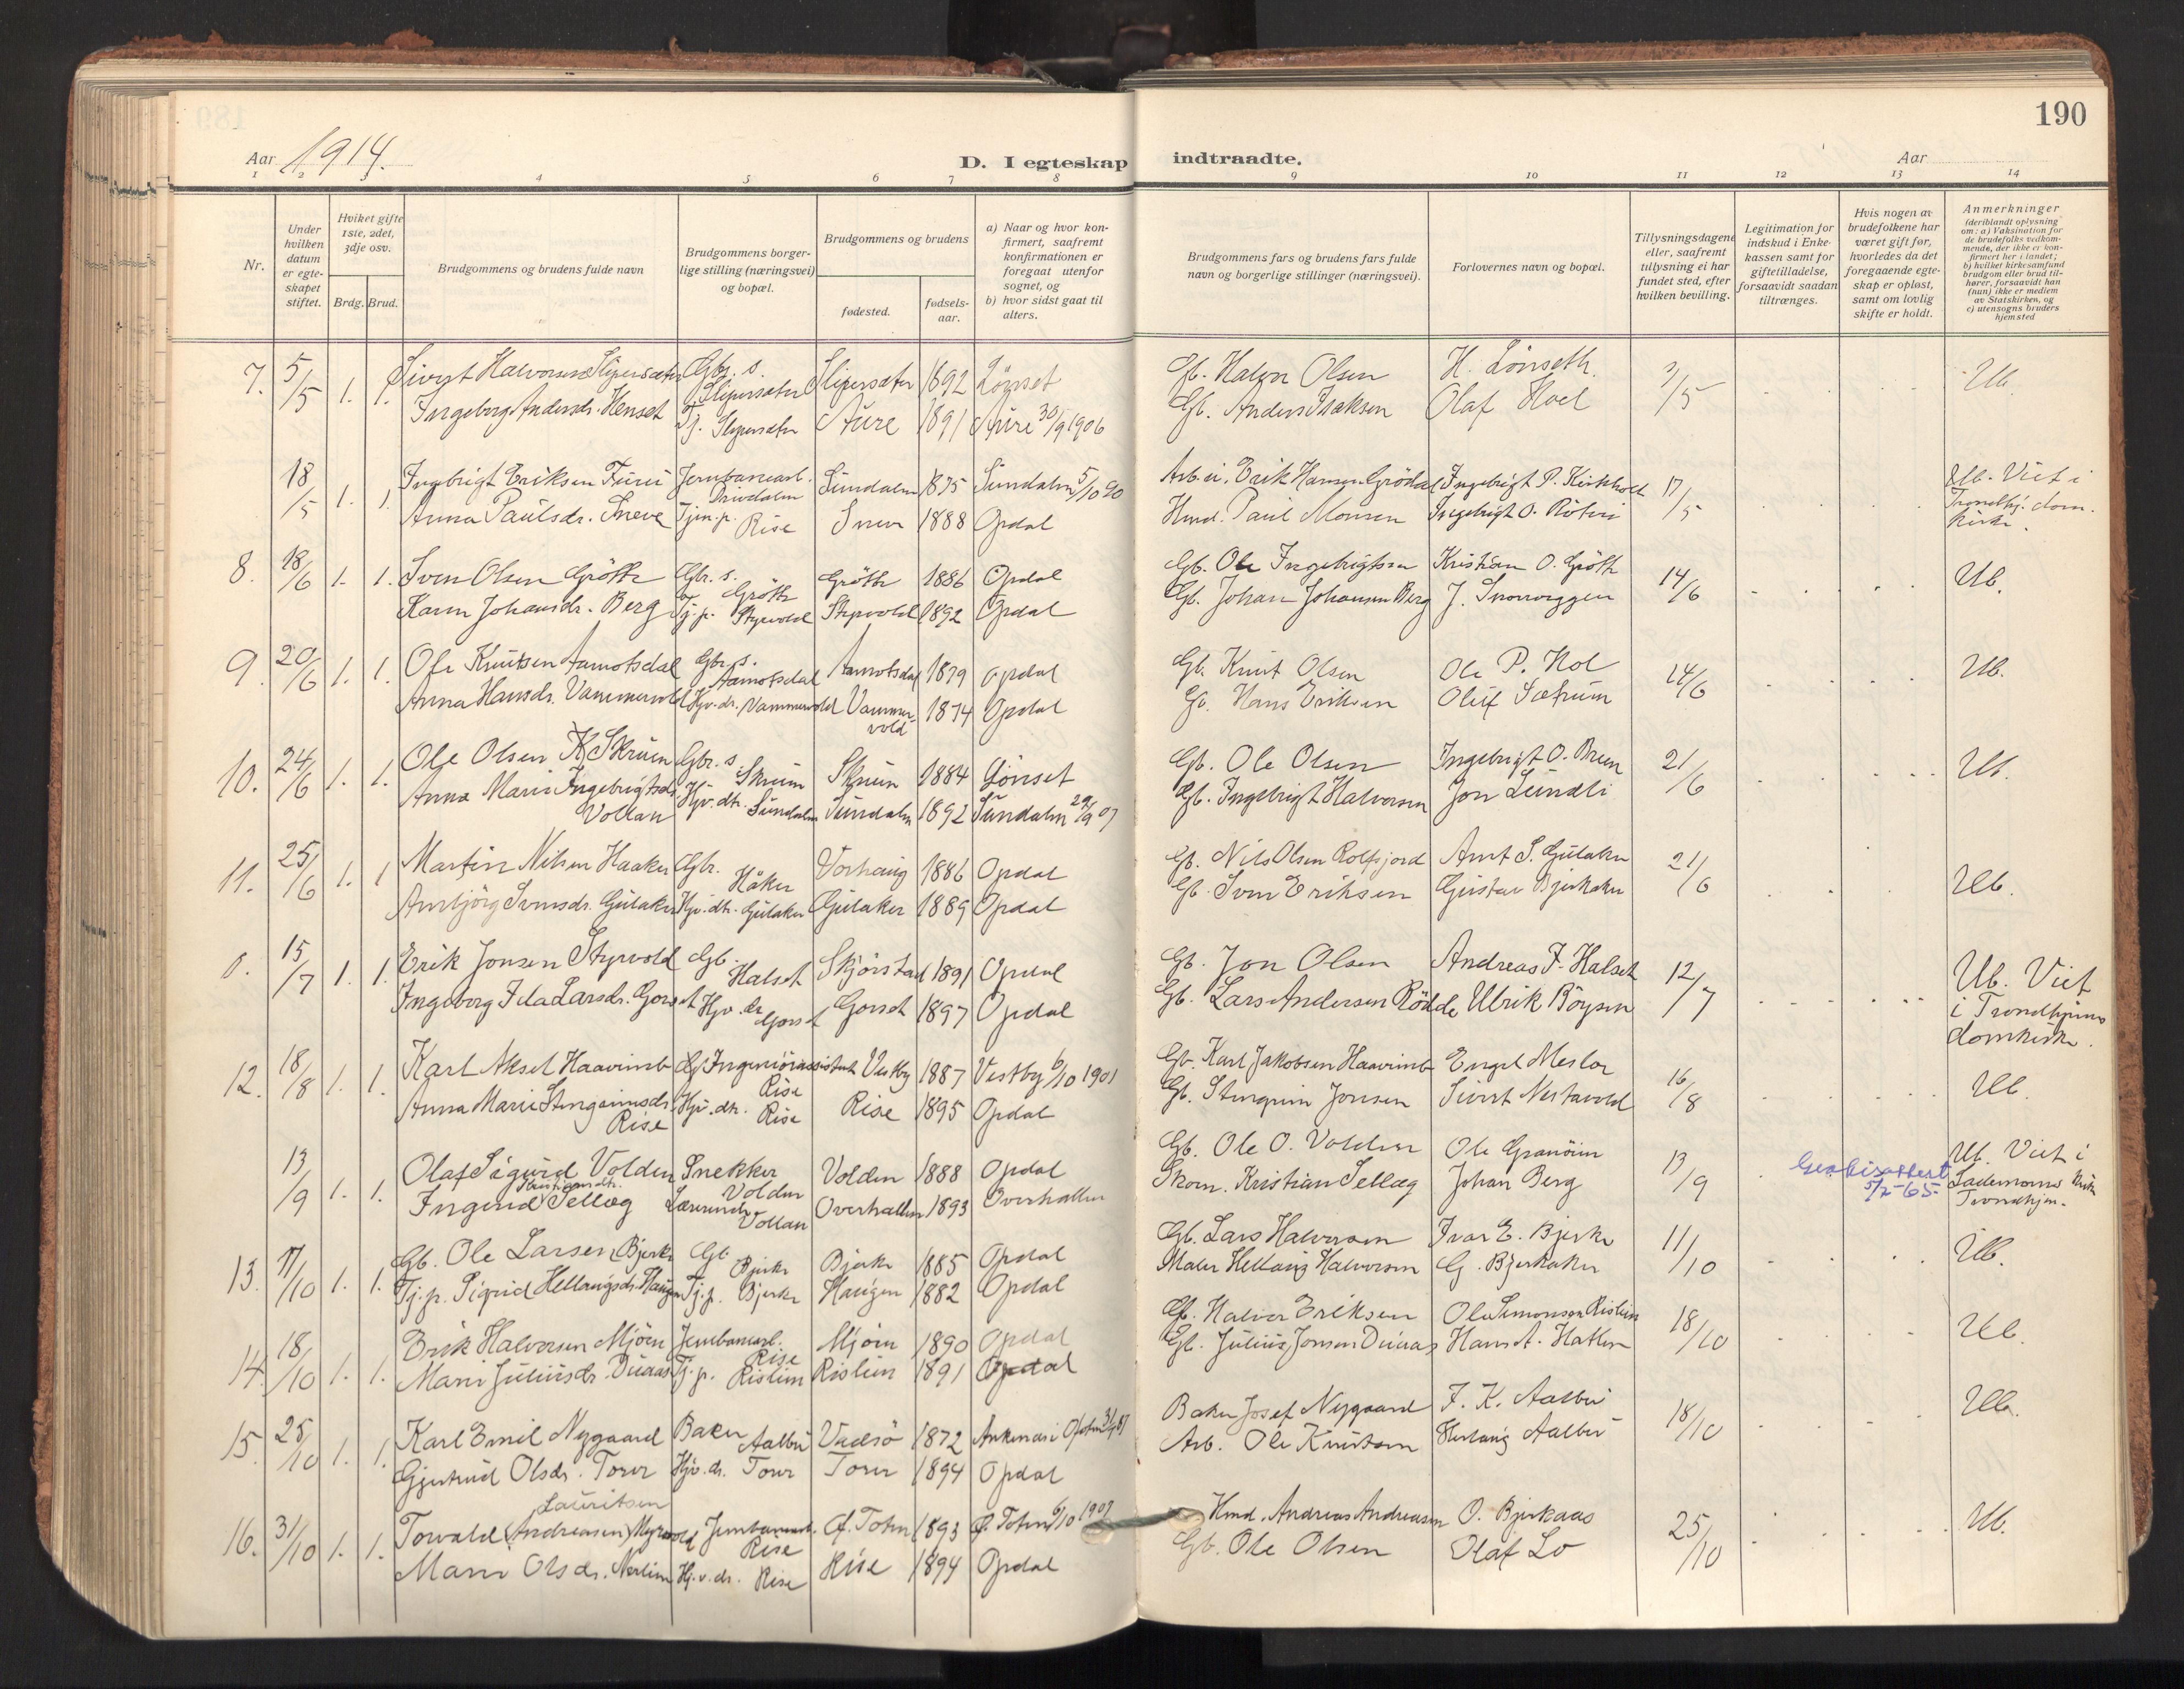 190
Aar 1914.
D. I egteskap indtraadte.
Aar
1 2 3 4 5 6 7 8 9 10 11 12 13 14
Nr.
Under hvilken datum er egteskapet stiftet.
Hviket gifte 1ste, 2det, 3dje osv.
Brdg. Brud.
Brudgommens og brudens fulde navn
Brudgommens borgerlige stilling (næringsvei) og bopæl.
Brudgommens og brudens
fødested.
fødselsaar.
a) Naar og hvor konfirmert, saafremt konfirmationen er foregaat utenfor sognet, og
b) hvor sidst gaat til alters.
Brudgommens fars og brudens fars fulde navn og borgerlige stillinger (næringsvei).
Forlovernes navn og bopæl.
Tillysningsdagene eller, saafremt tillysning ei har fundet sted, efter hvilken bevilling.
Legitimation for indskud i Enkekassen samt for giftetilladelse, forsaavidt saadan tiltrænges.
Hvis nogen av brudefolkene har været gift før, hvorledes da det foregaaende egteskap er opløst, samt om lovlig skifte er holdt.
Anmerkninger (deriblandt oplysning om: a) Vaksination for de brudefolks vedkommende, der ikke er konfirmert her i landet; b) hvilket kirkesamfund brudgom eller brud tilhører, forsaavidt han (hun) ikke er medlem av Statskirken, og c) utensogns bruders hjemsted
7. 5/5 1. 1. Sivert Halvorsen Slipersæter Gbr. s. Slipersæter Slipersæter 1892 Lönset Gb. Halvor Olsen H. Lönseth 3/5 Ub.
Ingeborg Andersdr. Henset Tj. Slipersæter Aure 1891 Aure 30/9 1906 Gb. Anders Isaksen Olaf Hoel
18/5 1. 1. Ingebrigt Eriksen Furu Jernbanearb. Drivdalen Sundalen 1875 Sundalen 5/10 90 Arb. Erik Hansen Grödal Ingebrigt P. Kirkholt 17/5 Ub. Viet i Trondhj. domkirke.
Anna Paulsdr. Sneve Tjen.p. Rise Sneve 1888 Opdal Hmd. Paul Monsen Ingebrigt O.
8. 18/6 1. 1. Sven Olsen Gröthe Gbr. s. Gröthe Gröthe 1886 Opdal Gb. Ole Ingebrigtsen Kristian O. Gröthe 14/6 Ub.
Karen Johansdr. Berg Tj.p. Styrvold Styrvold 1892 Opdal Gb. Johan Johansen Berg J. Snoroeggen
9. 20/6 1. 1. Ole Knutsen Aamotsdal Gbr. s. Aamotsdal Aamotsdal 1879 Opdal Gb. Knut Olsen Ole P. Hol 14/6 Ub.
Anna Hansdr. Vammervold Hjv. dr. Vammervold Vammervold 1874 Opdal Gb. Hans Eriksen Oluf Sætrum
10. 24/6 1. 1. Ole Olsen Skruen Gbr. s. Skruen Skruen 1884 Lönset Gb. Ole Olsen Ingebrigt O. Breen 21/6 Ub.
Anna Marie Ingebrigtsdr. Vollan Hjv. dtr. Sundalen Sundalen 1892 Sundalen 29/9 07 Gb. Ingebrigt Halvorsen Jon Lundli
11. 25/6 1. 1 Martin Nilsen Haaker Gbr. Håker Vorhaug 1886 Opdal Gb. Nils Olsen Rolfsjord Arnt S. Gulaker 21/6 Ub.
Arnbjörg Svensdr. Gulaker Hjv. dtr. Gulaker Gulaker 1889 Opdal Gb. Sven Eriksen Gustav Bjerkaker
0. 15/7 1. 1. Erik Jonsen Styrvold Gb. Halset Skjörstad 1891 Opdal Gb. Jon Olsen Andreas F. Halset 12/7 Ub. Viet i Trondhjems domkirke.
Ingeborg Ida Larsdr. Gorset Hjv. dr. Gorset Gorset 1897 Opdal Gb. Lars Andersen Rödde Ulrik Böysen
12. 18/8 1. 1. Karl Aksel Haavimb Ingeniörassistent Rise Vestby 1887 Vestby 6/10 1901 Gb. Karl Jakobsen Haavimb Engel Meslo 16/8 Ub.
Anna Marie Stengrimsdr. Rise Hjv. dtr. Rise Rise 1895 Opdal Gb. Stengrim Jonsen Sivert Nestavold
13/9 1. 1. Olaf Sigurd Volden Snekker Volden Volden 1888 Opdal Gb. Ole O. Volden Ole Granöien 13/9 5/2-65 Ub. Viet i Lademoens Kirke Trondhjem.
Ingerid Kristiansdtr. Sellæg Lærerinde Vollan Overhallen 1893 Overhallen Skom. Kristian Sellæg Johan Berg
13. 11/10 1. 1. Gb. Ole Larsen Bjerke Gb Bjerke Bjerke 1885 Opdal Gb. Lars Halvorsen Ivar E. Bjerke 11/10 Ub.
Tj.p. Sigrid Hellaugsdr. Haugen Tj.p. Bjerke Haugen 1882 Opdal Maler Hellaug Halvorsen G. Bjerkaker
14. 18/10 1. 1. Erik Halvorsen Mjöen Jernbanearb. Rise Mjöen 1890 Opdal Gb. Halvor Eriksen Ole Simonsen Rislien 18/10 Ub.
Marie Juliusdr. Duaas Tj.p. Rislien Rislien 1891 Opdal Gb. Julius Jonsen Duaas Hans A. Hatlen
15. 25/10 1. 1. Karl Emil Nygaard Baker Aalbu Vadsö 1872 Ankenæs i Ofoten Baker Josef Nygaard F. K. Aalbu 18/10 Ub.
Gjertrud Olsdr. Torve Hjv. dr. Torve Torve 1894 Opdal Arb. Ole Knutsen Herlaug Aalbu
16. 31/10 1. 1. Lauritsen Torvald (Andreassen) Myrvold Jernbanearb. Rise Ø. Toten 1893 Ø. Toten 6/10 1907 Hmd. Andreas Andreassen O. Bjerkaas 25/10 Ub.
Marie Olsdr. Nerlien Hj.v. dr. Rise Rise 1894 Opdal Gb. Ole Olsen Olaf Lo